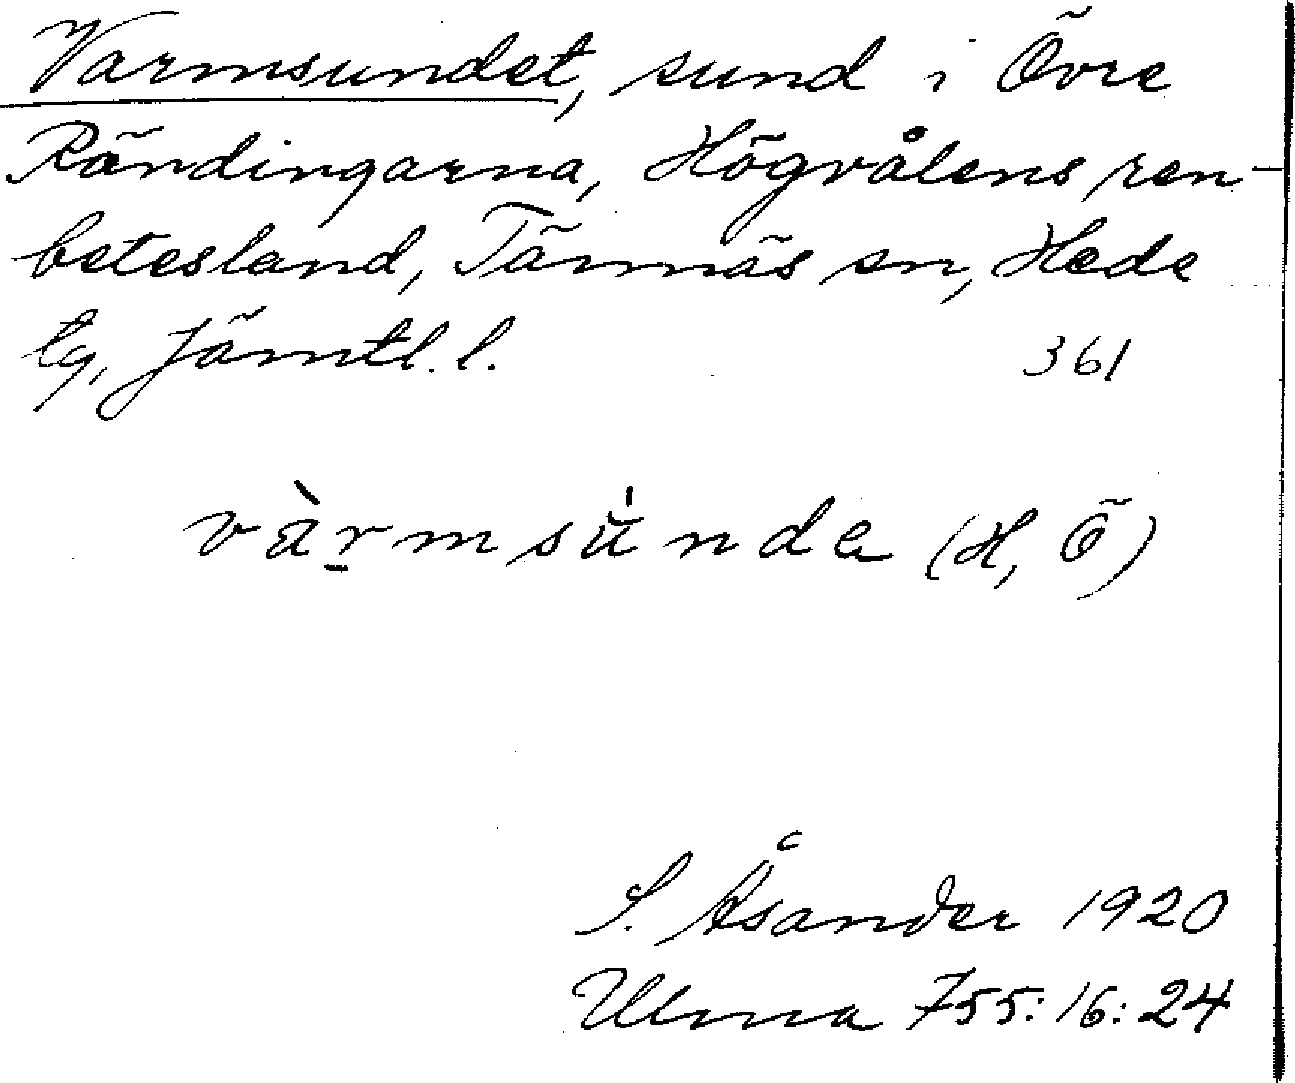 Varmsundet, sund i Övre
Rändingarna, Högvålens ren-
betesland, Tännäs sn, Hede
tg, Jämtl. l. 361
värmsúndα (H, Ö)
S. Åsander 1920
Ulma 755:16:24